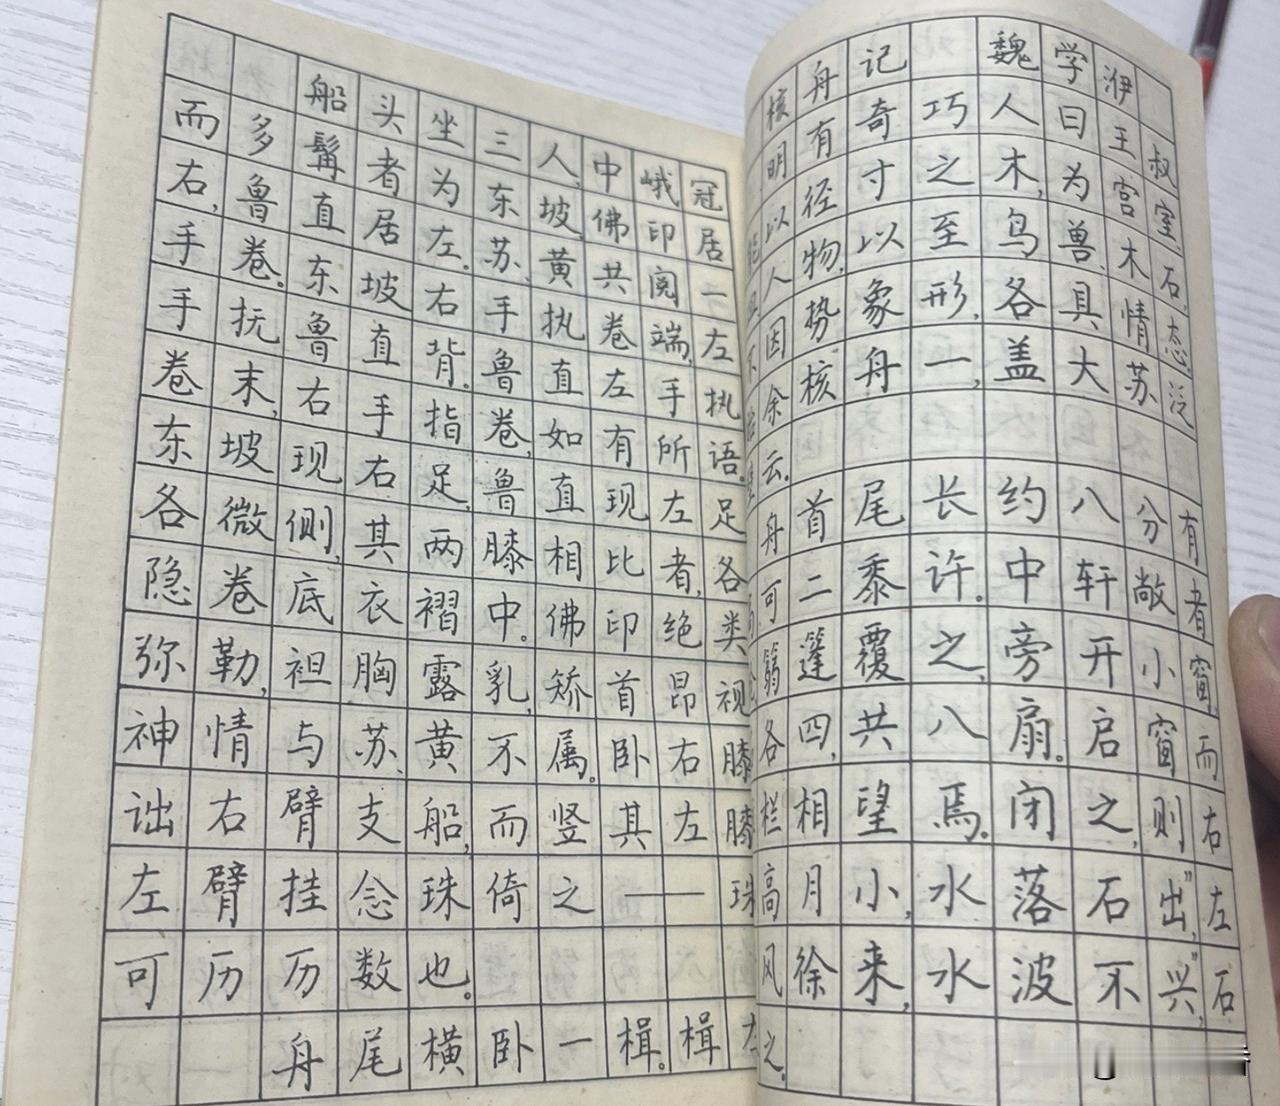 核舟记 魏学洢
明有奇巧人曰王叔
能以径寸之木,为宫室、
皿人物,以至鸟兽、木石,
不因势象形,各具情态
贻余核舟一,盖大苏泛
壁云。
舟首尾长约八分有
高可二黍许。中轩敞者
舱箬篷覆之,旁开小窗,
各四,共八扇。启窗而
栏相望焉。闭之,则右
高月小,水落石出”,左
风徐来,水波不兴”,石
之。
船头坐三人,中峨冠
而多髯者为东坡,佛印居
右,鲁直居左。苏、黄共阅一
手卷。东坡右手执卷端,左
手抚鲁直背。鲁直左手执
卷末,右手指卷,如有所语。
东坡现右足,鲁直现左足
各微侧,其两膝相比者,各
隐卷底衣褶中。佛印绝类
弥勒,袒胸露乳,矫首昂视
神情与苏、黄不属。卧右膝
诎右臂支船,而竖其左膝
左臂挂念珠倚之——珠
可历历数也。
舟尾横卧一楫。楫左